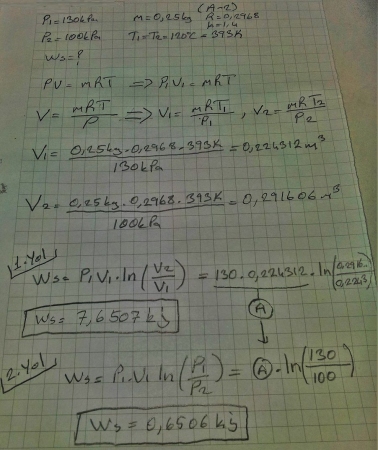 (A-2)
P₁=130kPa m=0,25kg R=0,2968
k=1,4
P₂=100kPa T₁=T₂=120°C=393K
Ws=?
PV=mRT => P₁V₁=mRT
V=mRT/P => V₁=mRT₁/P₁, V₂=mRT₂/P₂
V₁=0,25kg.0,2968.393K/130kPa=0,224312m³
V₂=0,25kg.0,2968.393K/100kPa=0,291606m³
1.Yol
Ws=P₁V₁.ln(V₂/V₁)=130.0,224312.ln(0,2916../0,2243)
Ws=7,6507kj
A
2.Yol
Ws=P₁.V₁ ln(P₁/P₂)=A.ln(130/100)
Ws=0,6506kj